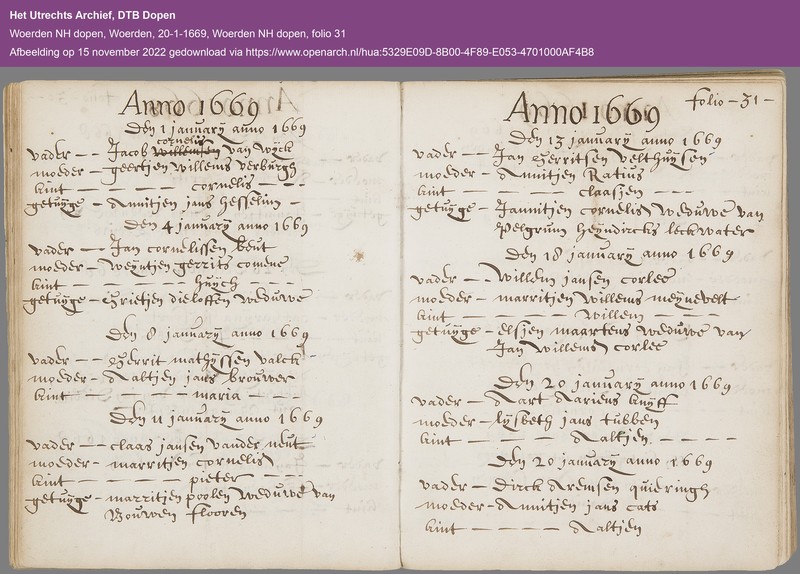 Het Utrechts Archief, DTB Dopen
Woerden NH dopen, Woerden, 20-1-1669, Woerden NH dopen, folio 31
Afbeelding op 15 november 2022 gedownload via https://www.openarch.nl/hua:5329E09D-8B00-4F89-E053-4701000AF4B8
Anno 1669
Den 1 january anno 1669
cornelis
vader — Jacob willemsen van wyck
moeder — geertjen willems verburgh
kint — cornelis —
getuyge — Annitjen jans hesselini —
den 4 january anno 1669
vader — Jan cornelissen beut
moeder — weyntjen gerrits comene
kint — huych —
getuyge — Grietjen dieloffen weduwe
Den 8 january anno 1669
vader — Gerrit mathyssen valck
moeder — Aaltjen jans brouwer
kint — maria —
Den 11 january anno 1669
vader — claas jansen vander neut
moeder — marritjen cornelis
kint — pieter —
getuyge — marritjen poolen weduwe van
Bouwen flooren
folio — 31 —
Anno 1669
Den 13 january anno 1669
vader — Jan Gerritsen velthuysen
moeder — Annitjen Ratius
kint — claasjen —
getuyge — Jannitjen cornelis weduwe van
Pelgrum heyndircks leckwater
Den 18 january anno 1669
vader — Willem jansen corlee
moeder — marritjen willems meynevelt
kint — Willem —
getuyge — elsjen maartens weduwe van
Jan Willems corlee
Den 20 january anno 1669
vader — Aart Ariens knyff
moeder — lysbeth jans tubben
kint — Aaltjen —
Den 20 january anno 1669
vader — Dirck Aremsen quieringh
moeder — Annitjen jans cats
kint — Aaltjen